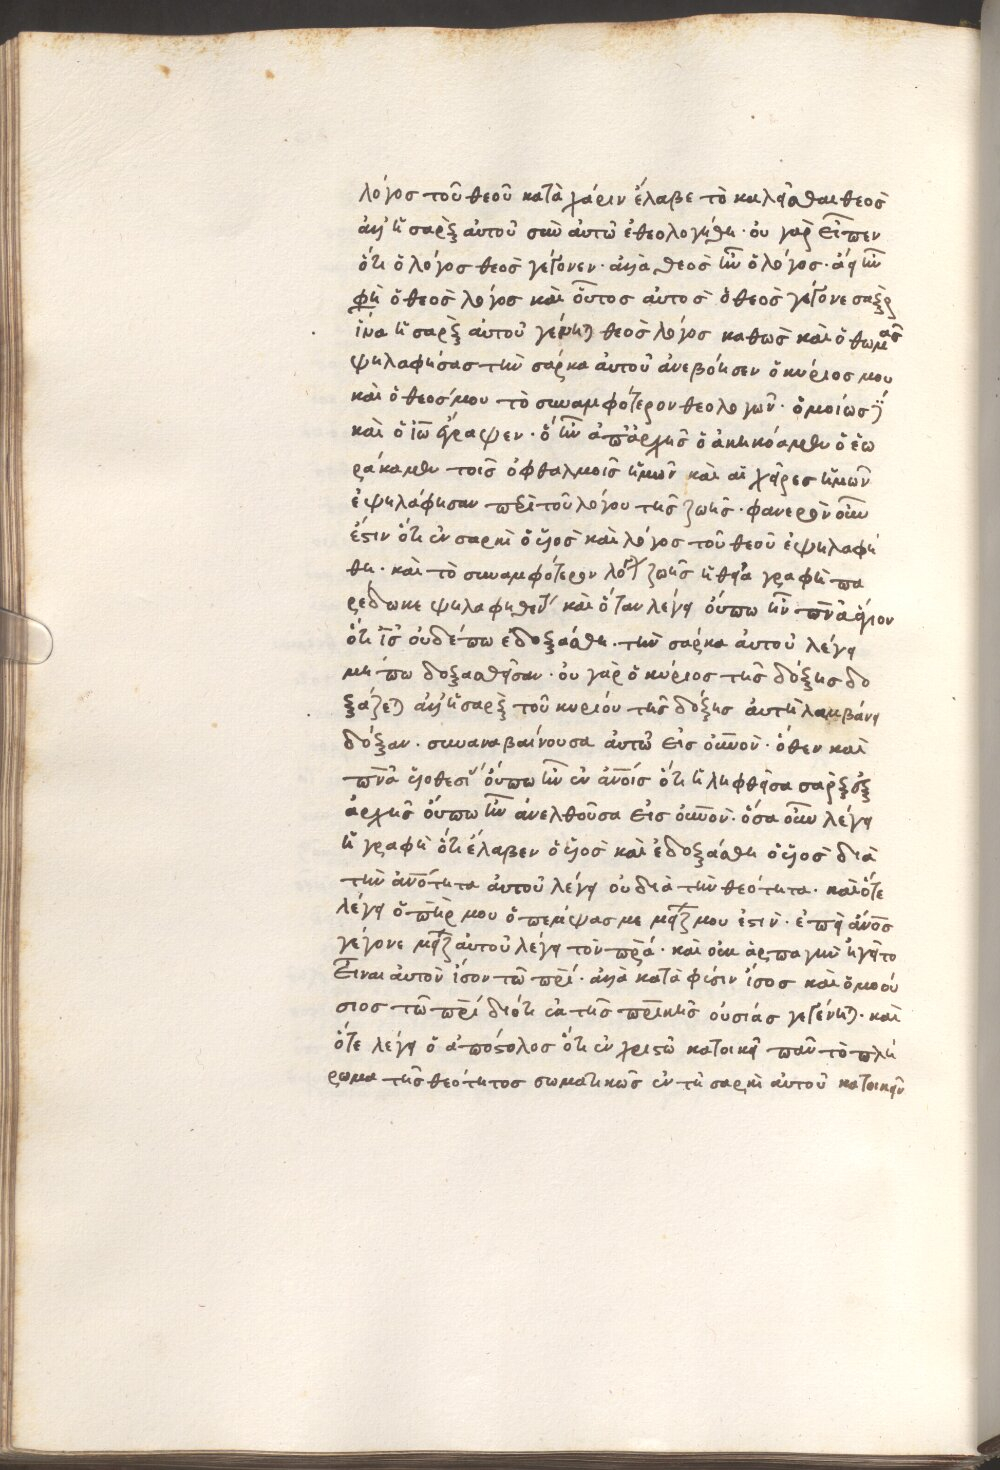 λόγοσ τοῦ θεοῦ κατὰ χάριν ἔλαβε τὸ καλεῖσθαι θεὸσ
ἀλλ' ἡ σαρξ ἀυτοῦ σὺν ἀυτῶ ἐθεολογήθη · ου γαρ εἶπεν
ὅτι ὁ λόγοσ θεοσ γέγονεν · ἀλλὰ θεοσ ἦν ὁ λόγοσ · ἀεὶ ἦν
φη ὁ θεοσ λόγοσ καὶ οὗτοσ αυτοσ ὁ θεοσ γέγονε σαρξ
ἵνα ἡ σαρξ ἀυτοῦ γένηται θεοσ λόγοσ καθωσ καὶ ὁ θωμασ
ψηλαφήσασ την σάρκα ἀυτοῦ ἀνεβόησεν ὁ κύριοσ μου
καὶ ὁ θεοσ μου τὸ συναμφότερον θεολογῶν · ὁμοίωσ δὲ
καὶ ὁ ἰω ἔγραψεν · ὃ ἦν ἀπ ἀρχῆσ ὃ ἀκηκόαμεν ὃ ἑω
ράκαμεν τοισ ὀφθαλμοῖσ ἡμῶν καὶ αἱ χεῖρεσ ἡμῶν
ἐψηλάφησαν περὶ τοῦ λόγου τῆσ ζωῆσ · φανερὸν οὖν
ἐστιν ὅτι ἐν σαρκὶ ὁ υἱοσ καὶ λόγοσ τοῦ θεοῦ ἐψηλαφή
θη · καὶ τὸ συναμφότερον λόγον ζωῆσ ἡ θεία γραφὴ πα
ρέδωκε ψηλαφηθέντα καὶ ὅταν λέγη οὔπω ἦν πνα ἅγιον
ὅτι ισ ουδέπω ἐδοξάσθη · την σάρκα ἀυτοῦ λέγη
μήπω δοξασθεῖσαν · ου γαρ ὁ κύριοσ τῆσ δόξησ δο
ξάζεται ἀλλ' ἡ σαρξ τοῦ κυρίου τῆσ δόξησ ἀυτη λαμβάνη
δόξαν · συναναβαίνουσα ἀυτῶ εἰσ ουνον · ὅθεν καὶ
πνα υἱοθεσίασ οὔπω ἦν ἐν ανοισ ὅτι ἡ ληφθεῖσα σαρξ ἐξ
ἀρχῆσ οὔπω ἦν ἀνελθοῦσα εἰσ ουνον · ὅσα οὖν λέγη
ἡ γραφη ὅτι ἔλαβεν ὁ υἱοσ καὶ ἐδοξάσθη ὁ υἱοσ διὰ
την ανότητα ἀυτοῦ λέγη ου διὰ την θεότητα · καὶ ὅτε
λέγη ὁ πηρ μου ὁ πέμψασ με μείζ μου ἐστιν · ἐπεὶ ανοσ
γέγονε μείζ ἀυτοῦ λέγη τον πρα · καὶ ουχ ἁρπαγμὸν ἡγεῖτο
εἶναι ἀυτον ἴσον τῶ πρι · ἀλλὰ κατὰ φύσιν ἴσοσ καὶ ὁμοού
σιοσ τῶ πρι διότι ἐκ τῆσ πρικῆσ ουσίασ γεγένηται · καὶ
ὅτε λέγη ὁ ἀπόστολοσ ὅτι ἐν χριστῶ κατοικεῖ παν τὸ πλή
ρωμα τῆσ θεότητοσ σωματικῶσ ἐν τῆ σαρκὶ ἀυτοῦ κατοικεῖν